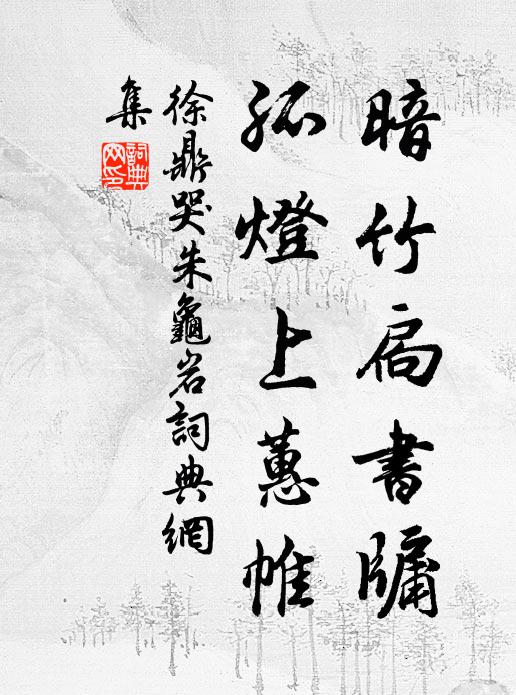 暗竹扃書牖
孤燈上蕙帷
徐鼎哭朱龜岩詞典網
集
詞典
网印